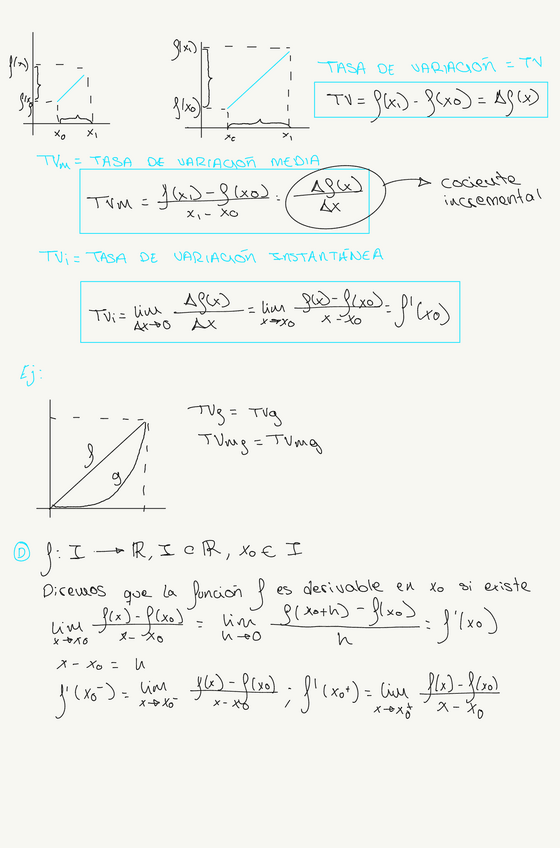 f(x₁)
f(x₀)
x₀ x₁
f(x₁)
f(x₀)
x₀ x₁
TASA DE VARIACIÓN = TV
TV = f(x₁) - f(x₀) = Δf(x)
TVm = TASA DE VARIACIÓN MEDIA
TVm = (f(x₁) - f(x₀))/(x₁ - x₀) = Δf(x)/Δx → cociente
incremental
TVi = TASA DE VARIACIÓN INSTANTÁNEA
TVi = lim Δx→0 Δf(x)/Δx = lim x→x₀ (f(x) - f(x₀))/(x - x₀) = f'(x₀)
Ej:
f
g
TVf = TVg
TVmf = TVmg
D f: I → ℝ, I ⊂ ℝ, x₀ ∈ I
Diremos que la función f es derivable en x₀ si existe
lim x→x₀ (f(x) - f(x₀))/(x - x₀) = lim h→0 (f(x₀+h) - f(x₀))/h = f'(x₀)
x - x₀ = h
f'(x₀⁻) = lim x→x₀⁻ (f(x) - f(x₀))/(x - x₀) ; f'(x₀⁺) = lim x→x₀⁺ (f(x) - f(x₀))/(x - x₀)